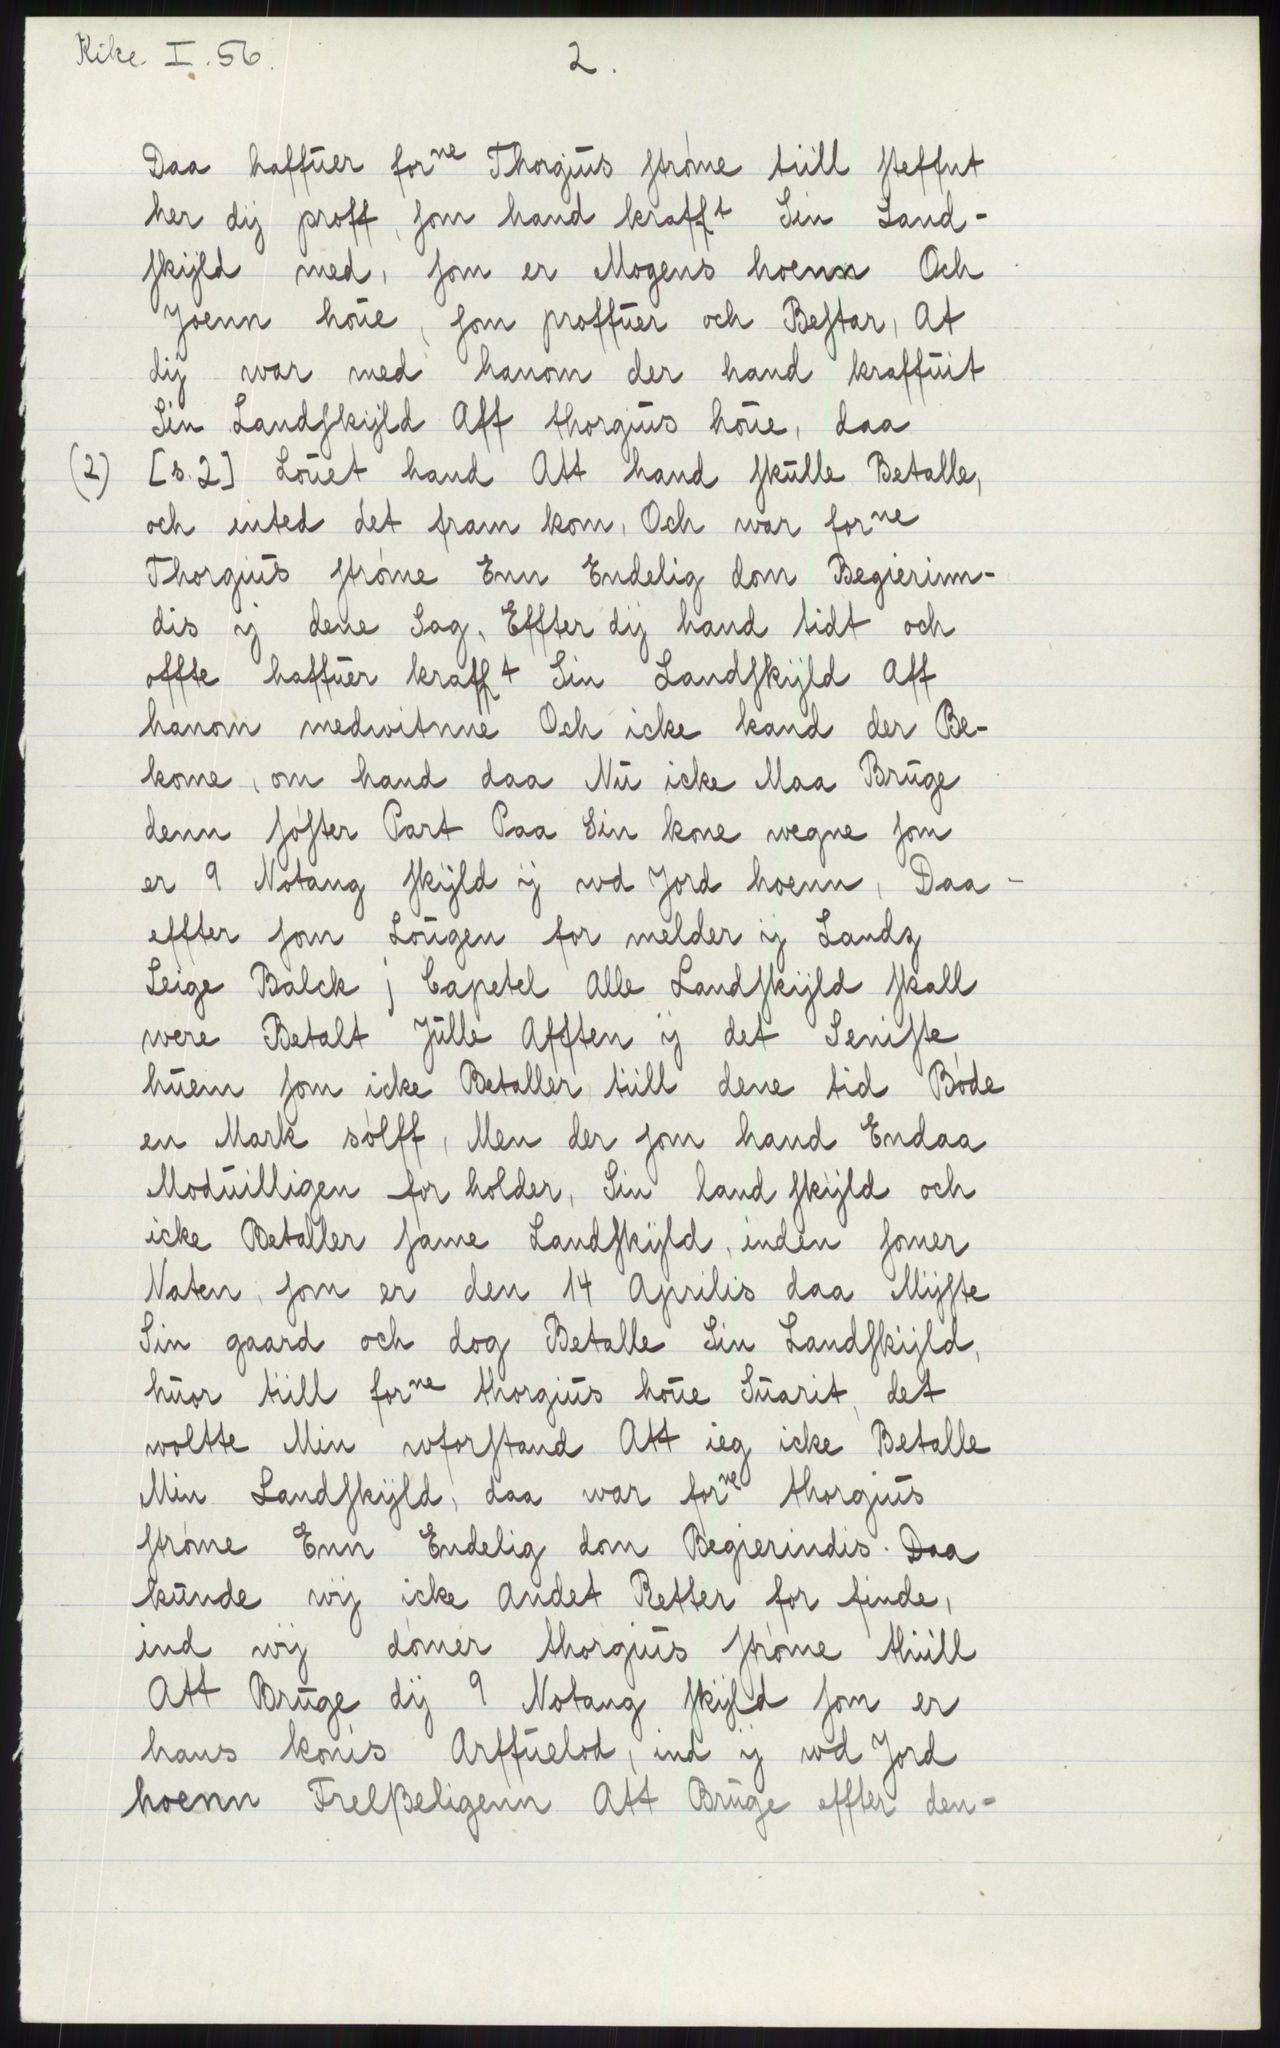 Rike. I. 56.
2.
Daa haffuer forne Thorgius strøme tiill steffnt
her dij proff, som hand krafft Sin Land-
skijld med, som er Mogens hoenn Och
Joenn høue, som proffuer och Bestar, At
dij war med hanom der hand kraffuit
Sin Landskijld Aff thorgius høue, daa
(2) [s. 2] Louet hand Att hand skulle Betalle,
och inted det fram kom, Och war forne
Thorgius strøme Enn Endelig dom Begierinn-
dis ij dene Sag, Effter dij hand tidt och
offte haffuer krafft Sin Landskijld Aff
hanom medwitnne Och icke kand der Be-
kome, om hand daa Nu icke Maa Bruge
denn søster Part Paa Sin kone wegne som
er 9 Notang skijld ij wd Jord hoenn, Daa -
effter som Lougen for melder ij Landz
Leige Balck j Capetel Alle Landskijld skall
were Betalt Julle Afften ij det Seniste,
huem som icke Betaller tiill dene tid Bøde
en Mark sølff, Men der som hand Endaa
Moduilligen for holder, Sin land skijld och
icke Betaller same Landskijld, inden somer
Naten, som er den 14 Aprilis daa Mijste
Sin gaard och dog Betalle Sin Landskijld,
huor tiill forne thorgius høue Suarit, det
woltte Min wforstand Att ieg icke Betalle
Min Landskijld, daa war forne thorgius
strøme Enn Endelig dom Begierindis. Daa
kunde wij icke andet Retter for finde,
ind wij dømer thorgius strøme thiill
Att Bruge dij 9 Notang skijld som er
hans konis Arffuelod, ind ij wd Jord
hoenn Frelßeligenn Att Bruge effter den-